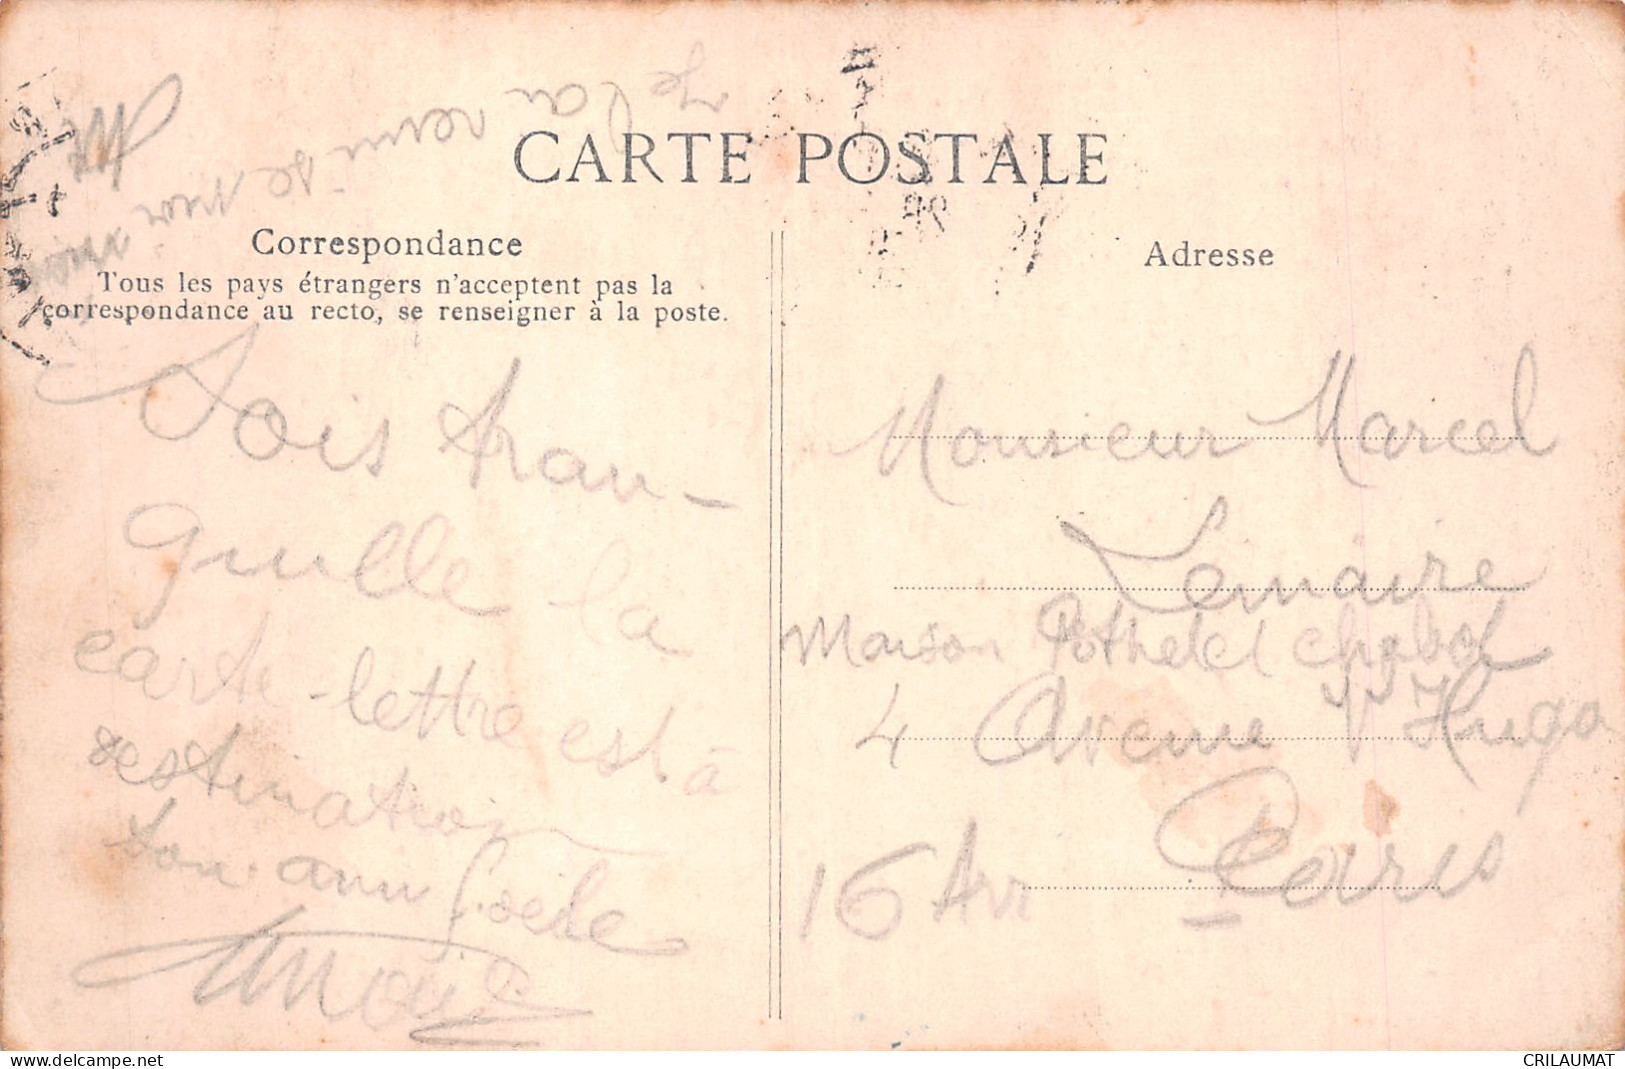 CARTE POSTALE
Correspondance
Tous les pays étrangers n'acceptent pas la
correspondance au recto, se renseigner à la poste.
Adresse
Sois tran-
quille la
carte-lettre est à
destination
ton ami
Monsieur Marcel
Lemaire
Maison Pothelet Chabot
4 Avenue V Hugo
Paris
16 Arr
delcampe.net
CRILAUMAT